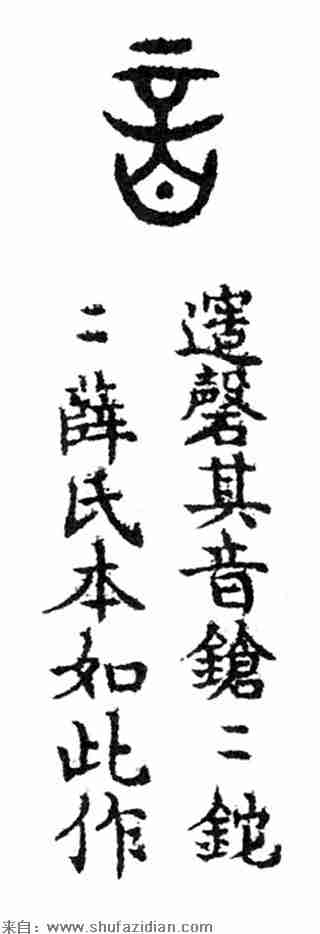 音
磬其音鎗二鉈
二薛氏本如此作
来自：www.shufazidian.com